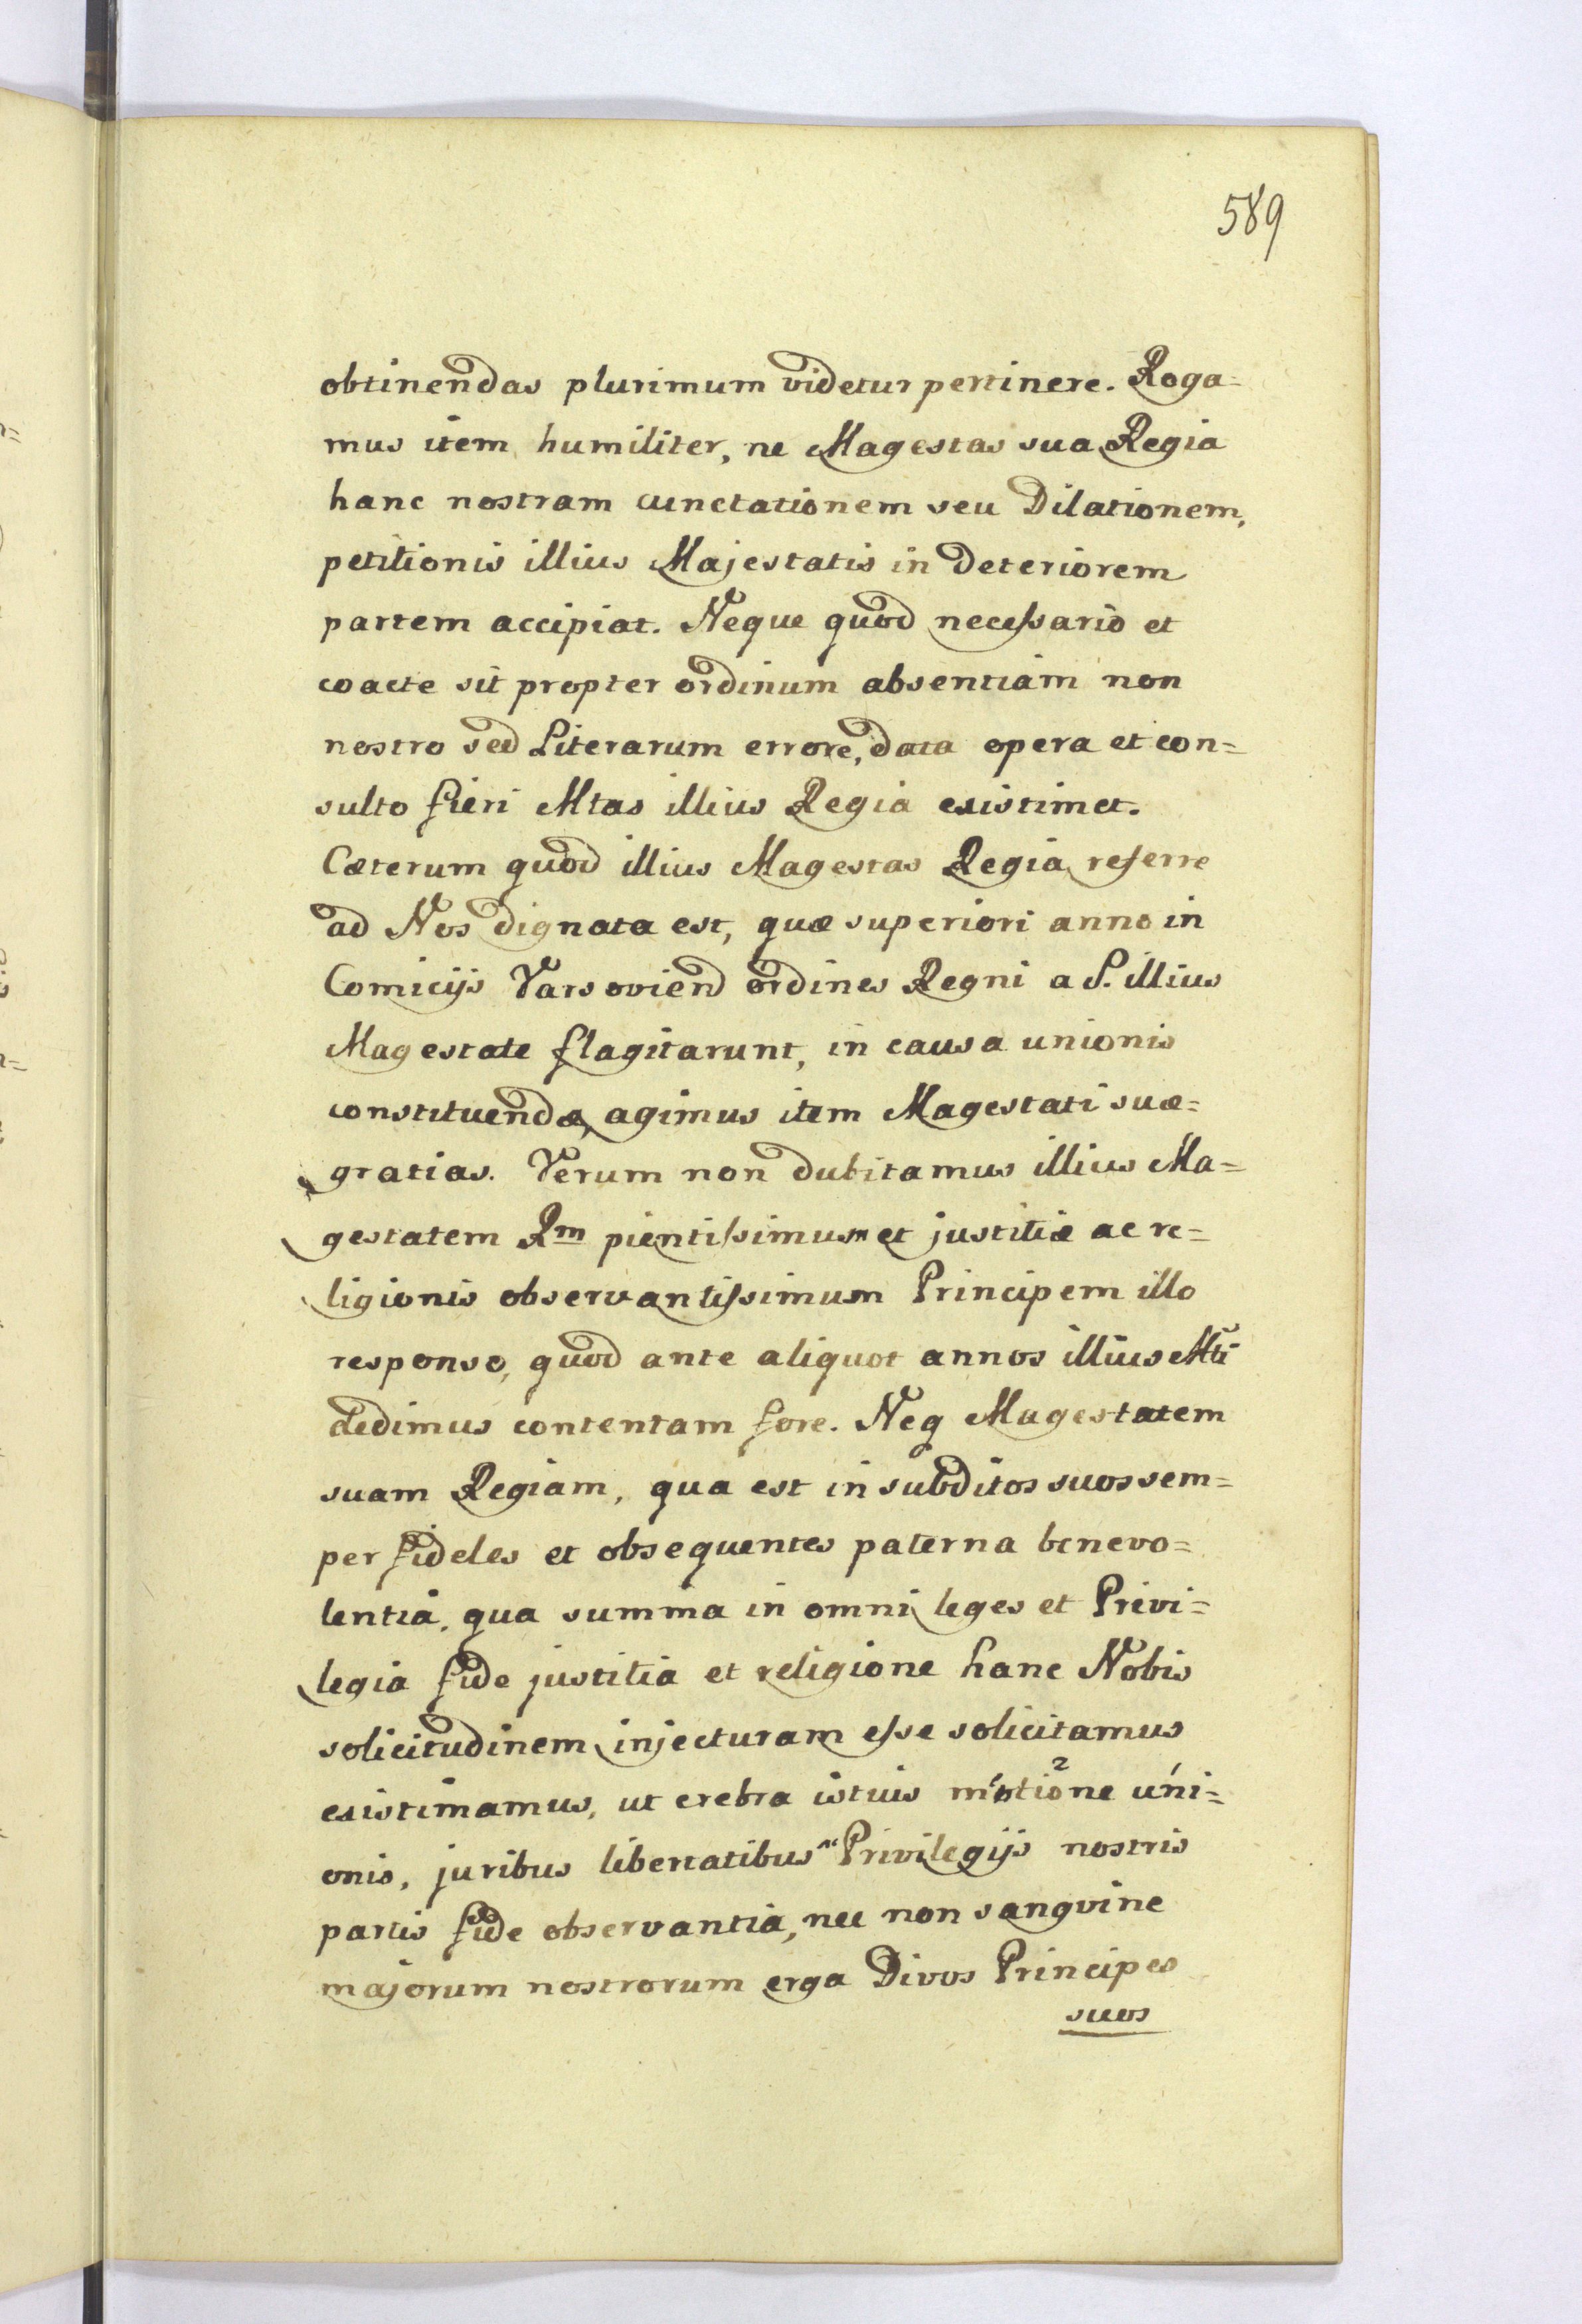 589
obtinendas plurimum videtur pertinere. Roga=
mus item humiliter, ne Magestas sua Regia
hanc nostram cunctationem seu Dilationem,
petitionis illius Majestatis in deteriorem
partem accipiat. Neque quod necessario et
coacte sit propter ordinum absentiam non
nostro sed Literarum errore, data opera et con=
sulto fieri Mtas illius Regia existimet.
Cæterum quod illius Magestas Regia referre
ad Nos dignata est, quæ superiori anno in
Comicijs Varsoviend ordines Regni a S. illius
Magestate flagitarunt, in causa unionis
constituendæ, agimus item Magestati suæ=
gratias. Verum non dubitamus illius Ma=
gestatem Rm pientissimum et justitiæ ac re=
ligionis observantissimum Principem illo
responso, quod ante aliquot annos illius Mti
dedimus contentam fore. Neq Magestatem
suam Regiam, qua est in subditos suos sem=
per fideles et obsequentes paterna benevo=
lentia, qua summa in omni leges et Privi=
legia fide justitia et religione hanc Nobis
solicitudinem injecturam esse solicitamus
existimamus, ut crebra istius uni=
onis, juribus libertatibus ac Privilegijs nostris
partis fide observantia, nec non sangvine
majorum nostrorum erga Divos Principes
suos